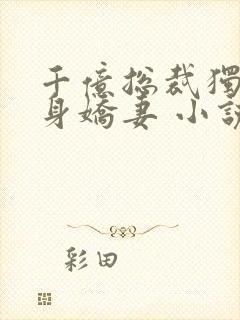 千億總裁獨
身嬌妻 小說
彩田